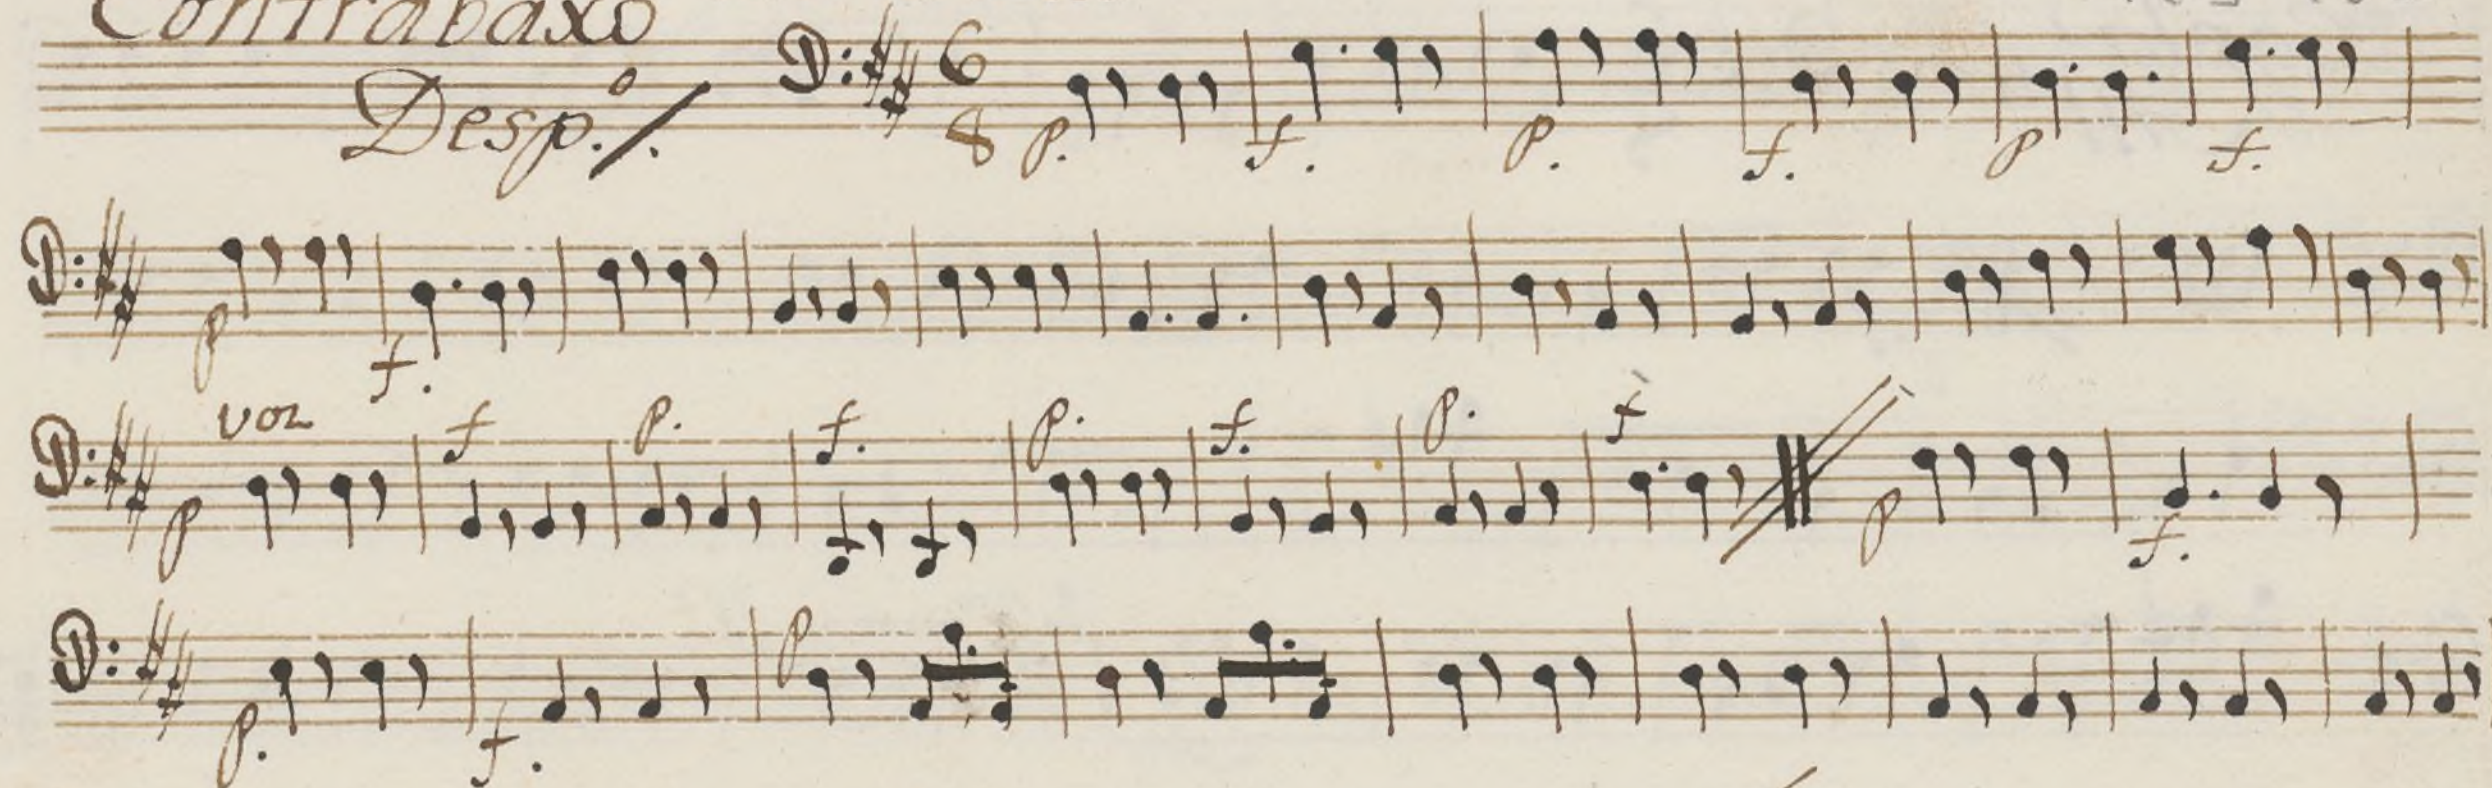 Contrabaxo
Desp.º
6
8
p. f. p. f. p f.
p f.
voz f p. f. p. f. p. f
p p f.
p
p. f.